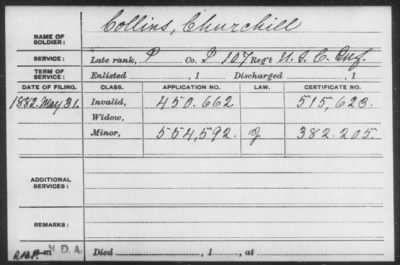 Collins, Churchill
NAME OF SOLDIER:
SERVICE: Late rank, P Co. B 107 Reg't U. S. C. Inf.
TERM OF SERVICE: Enlisted , 1 Discharged , 1
DATE OF FILING. CLASS. APPLICATION NO. LAW. CERTIFICATE NO.
1882. May 31. Invalid, 450.662 515,623.
Widow,
Minor, 554,592. 382.205.
ADDITIONAL SERVICES:
REMARKS:
Died , 1 , at